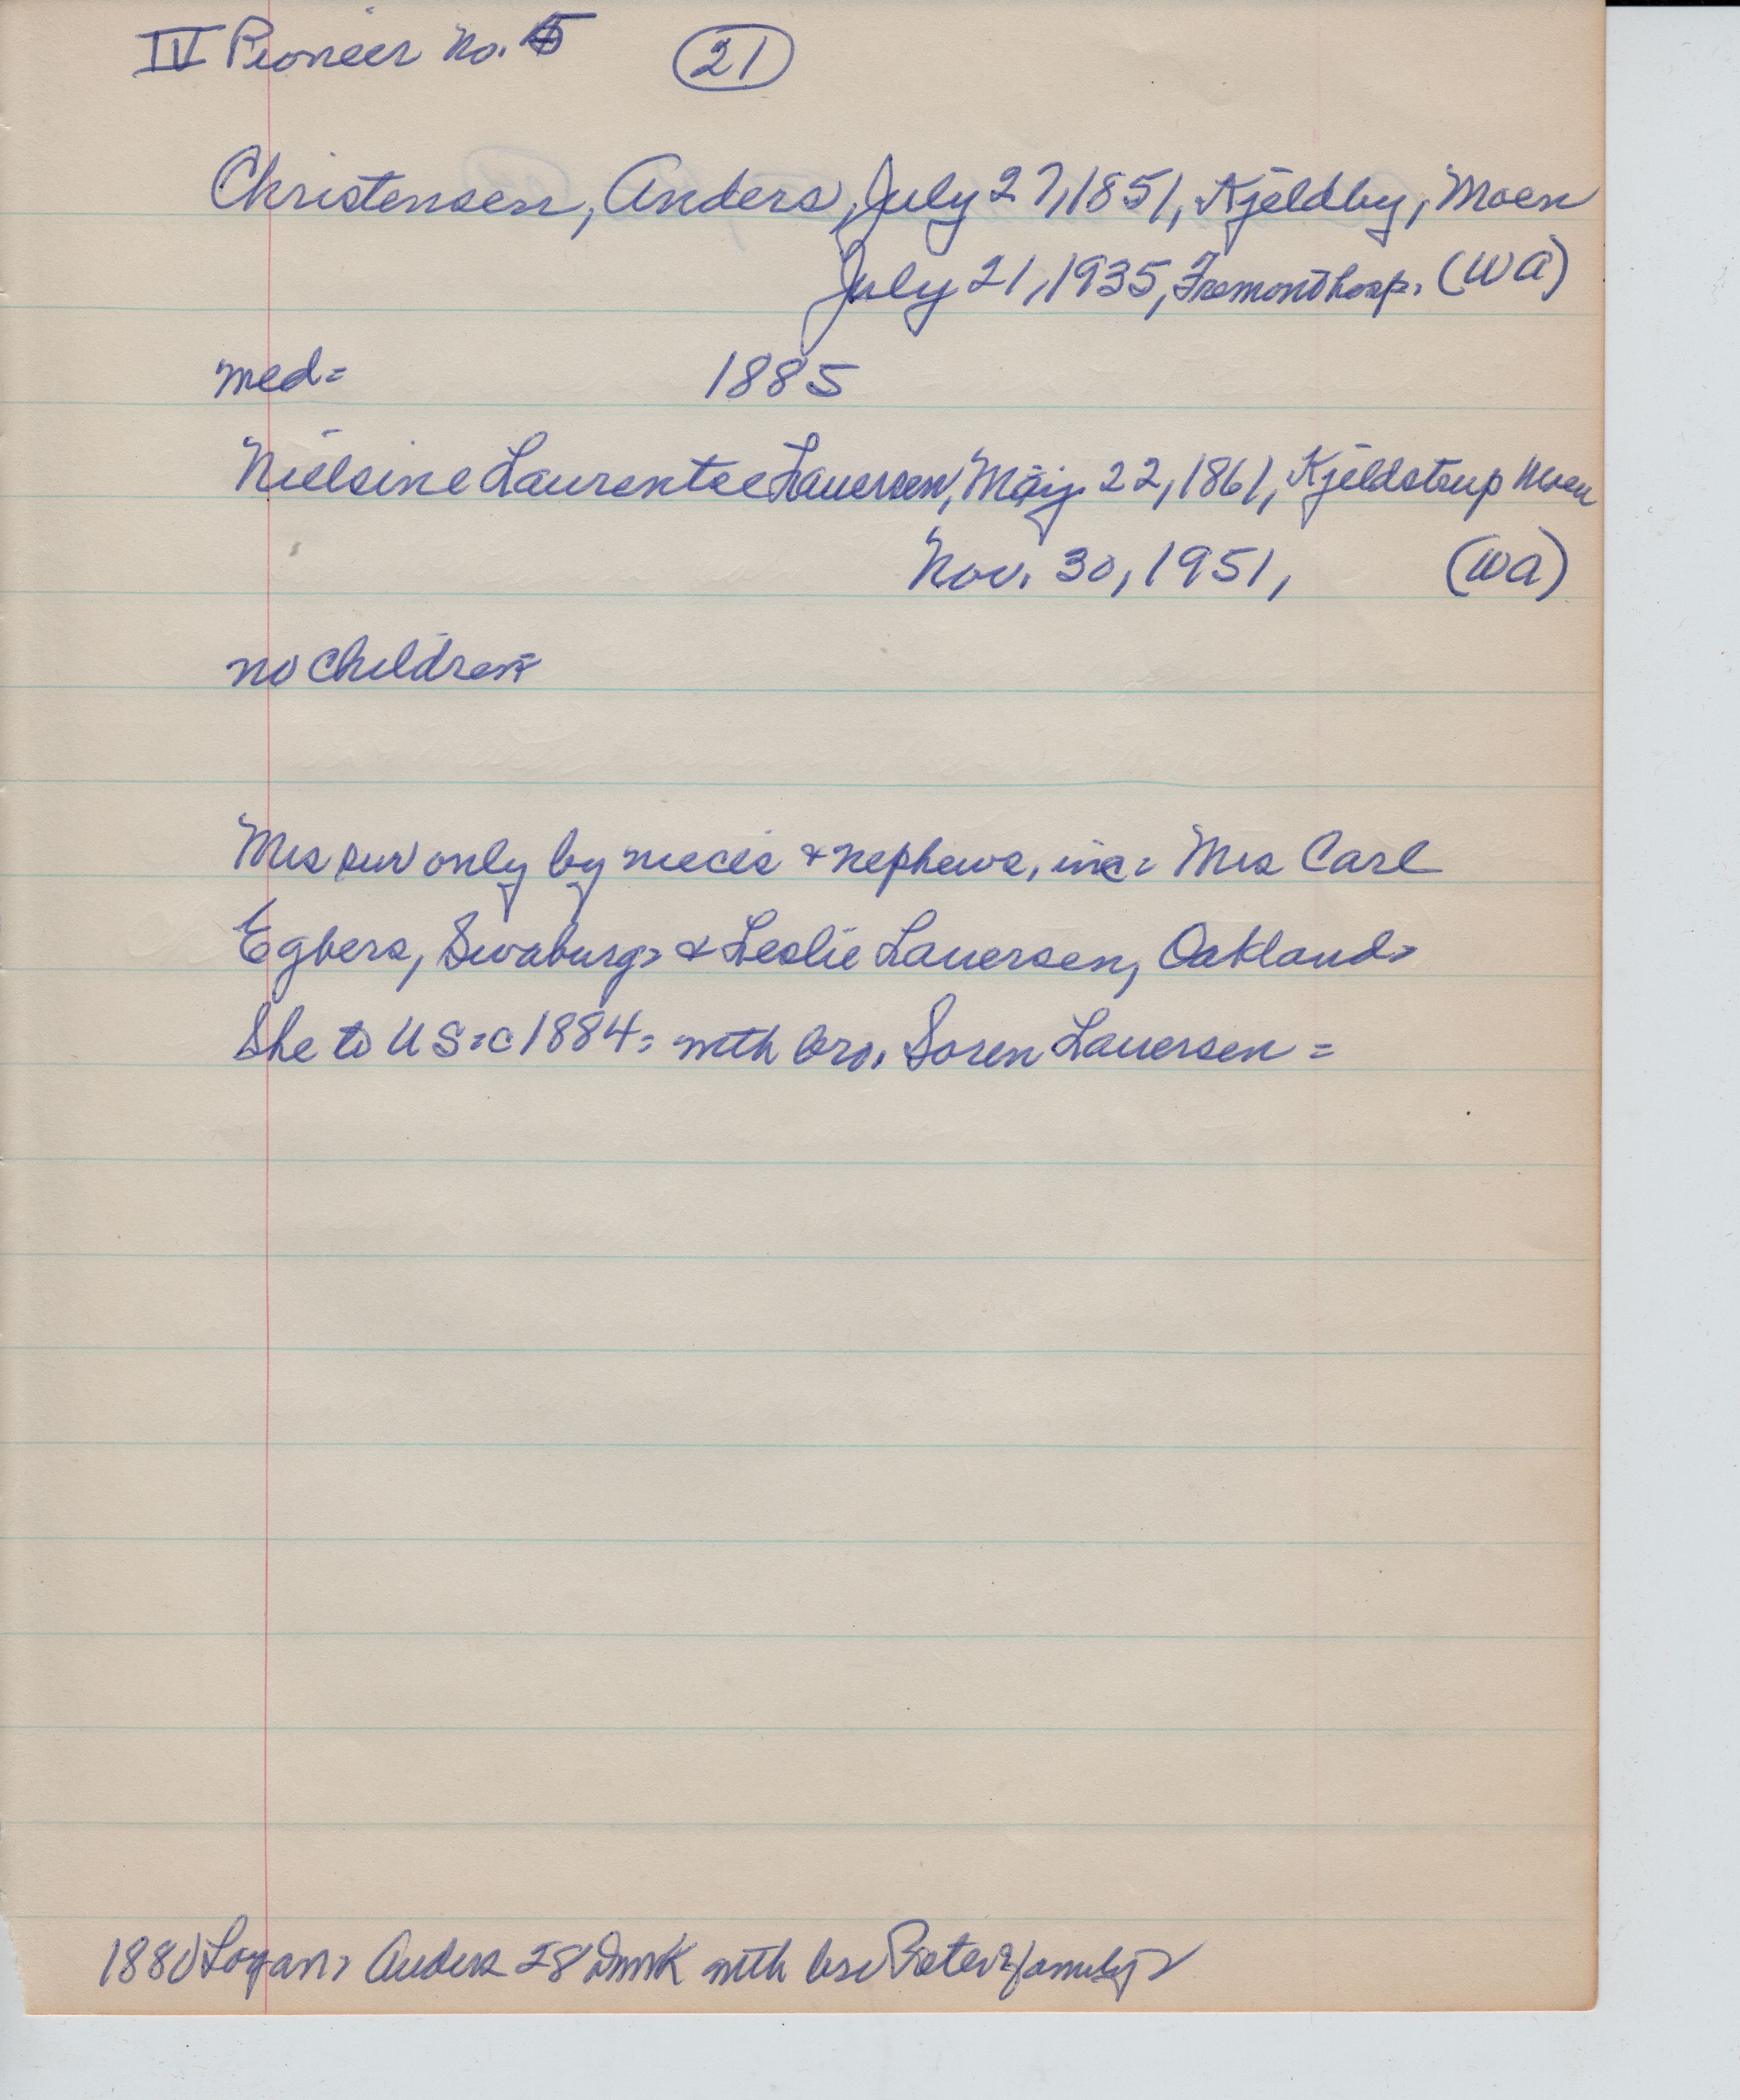 IV Pioneer No. 5 (21)
Christensen, Anders, July 27, 1851, Kjeldby, Moen
July 21, 1935, Fremont hosp. (WA)
med= 1885
Nielsine Laurentse Lauersen, May 22, 1861, Kjeldstrup Moen
Nov. 30, 1951, (WA)
no children=
Mrs sur only by nieces & nephews, inc= Mrs Carl
Egbers, Swaburg= & Leslie Lauersen, Oakland=
She to US=c 1884= with bro. Soren Lauersen =
1880 Logan= Anders 28 Dmk with bro Peter & family=